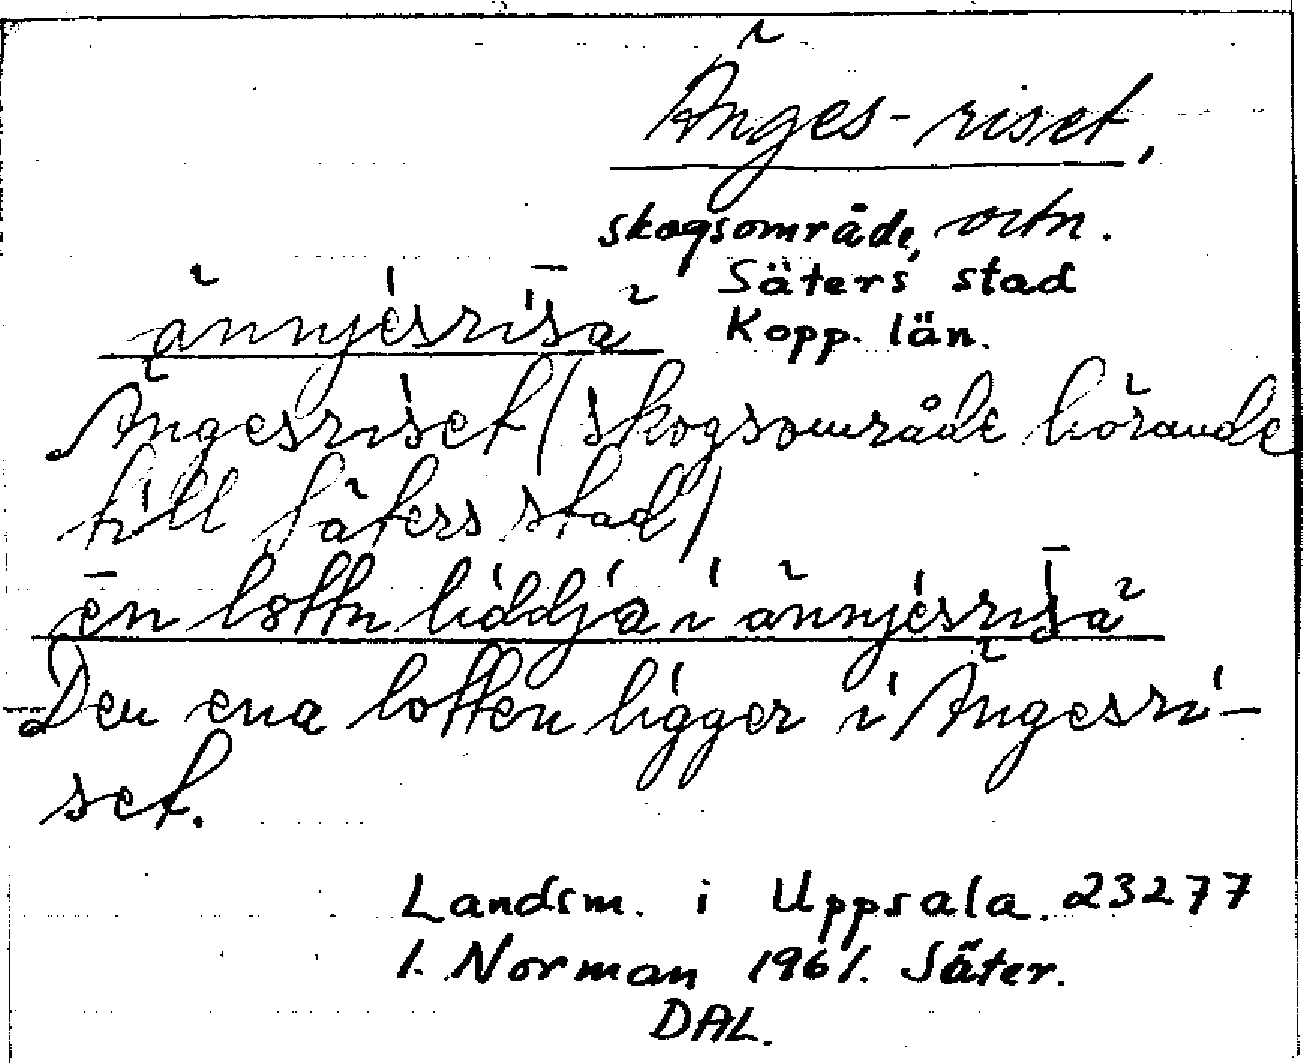 Änges-riset,
skogsområde, ortn.
Säters stad
Kopp. län.
ännjèsrisä
Ängesriset (skogsområde hörande
till Säters stad)
en lottn liddja i ännjèsrisä
Den ena lotten ligger i Ängesri-
set.
Landsm. i Uppsala. 23277
I. Norman 1961. Säter.
DAL.